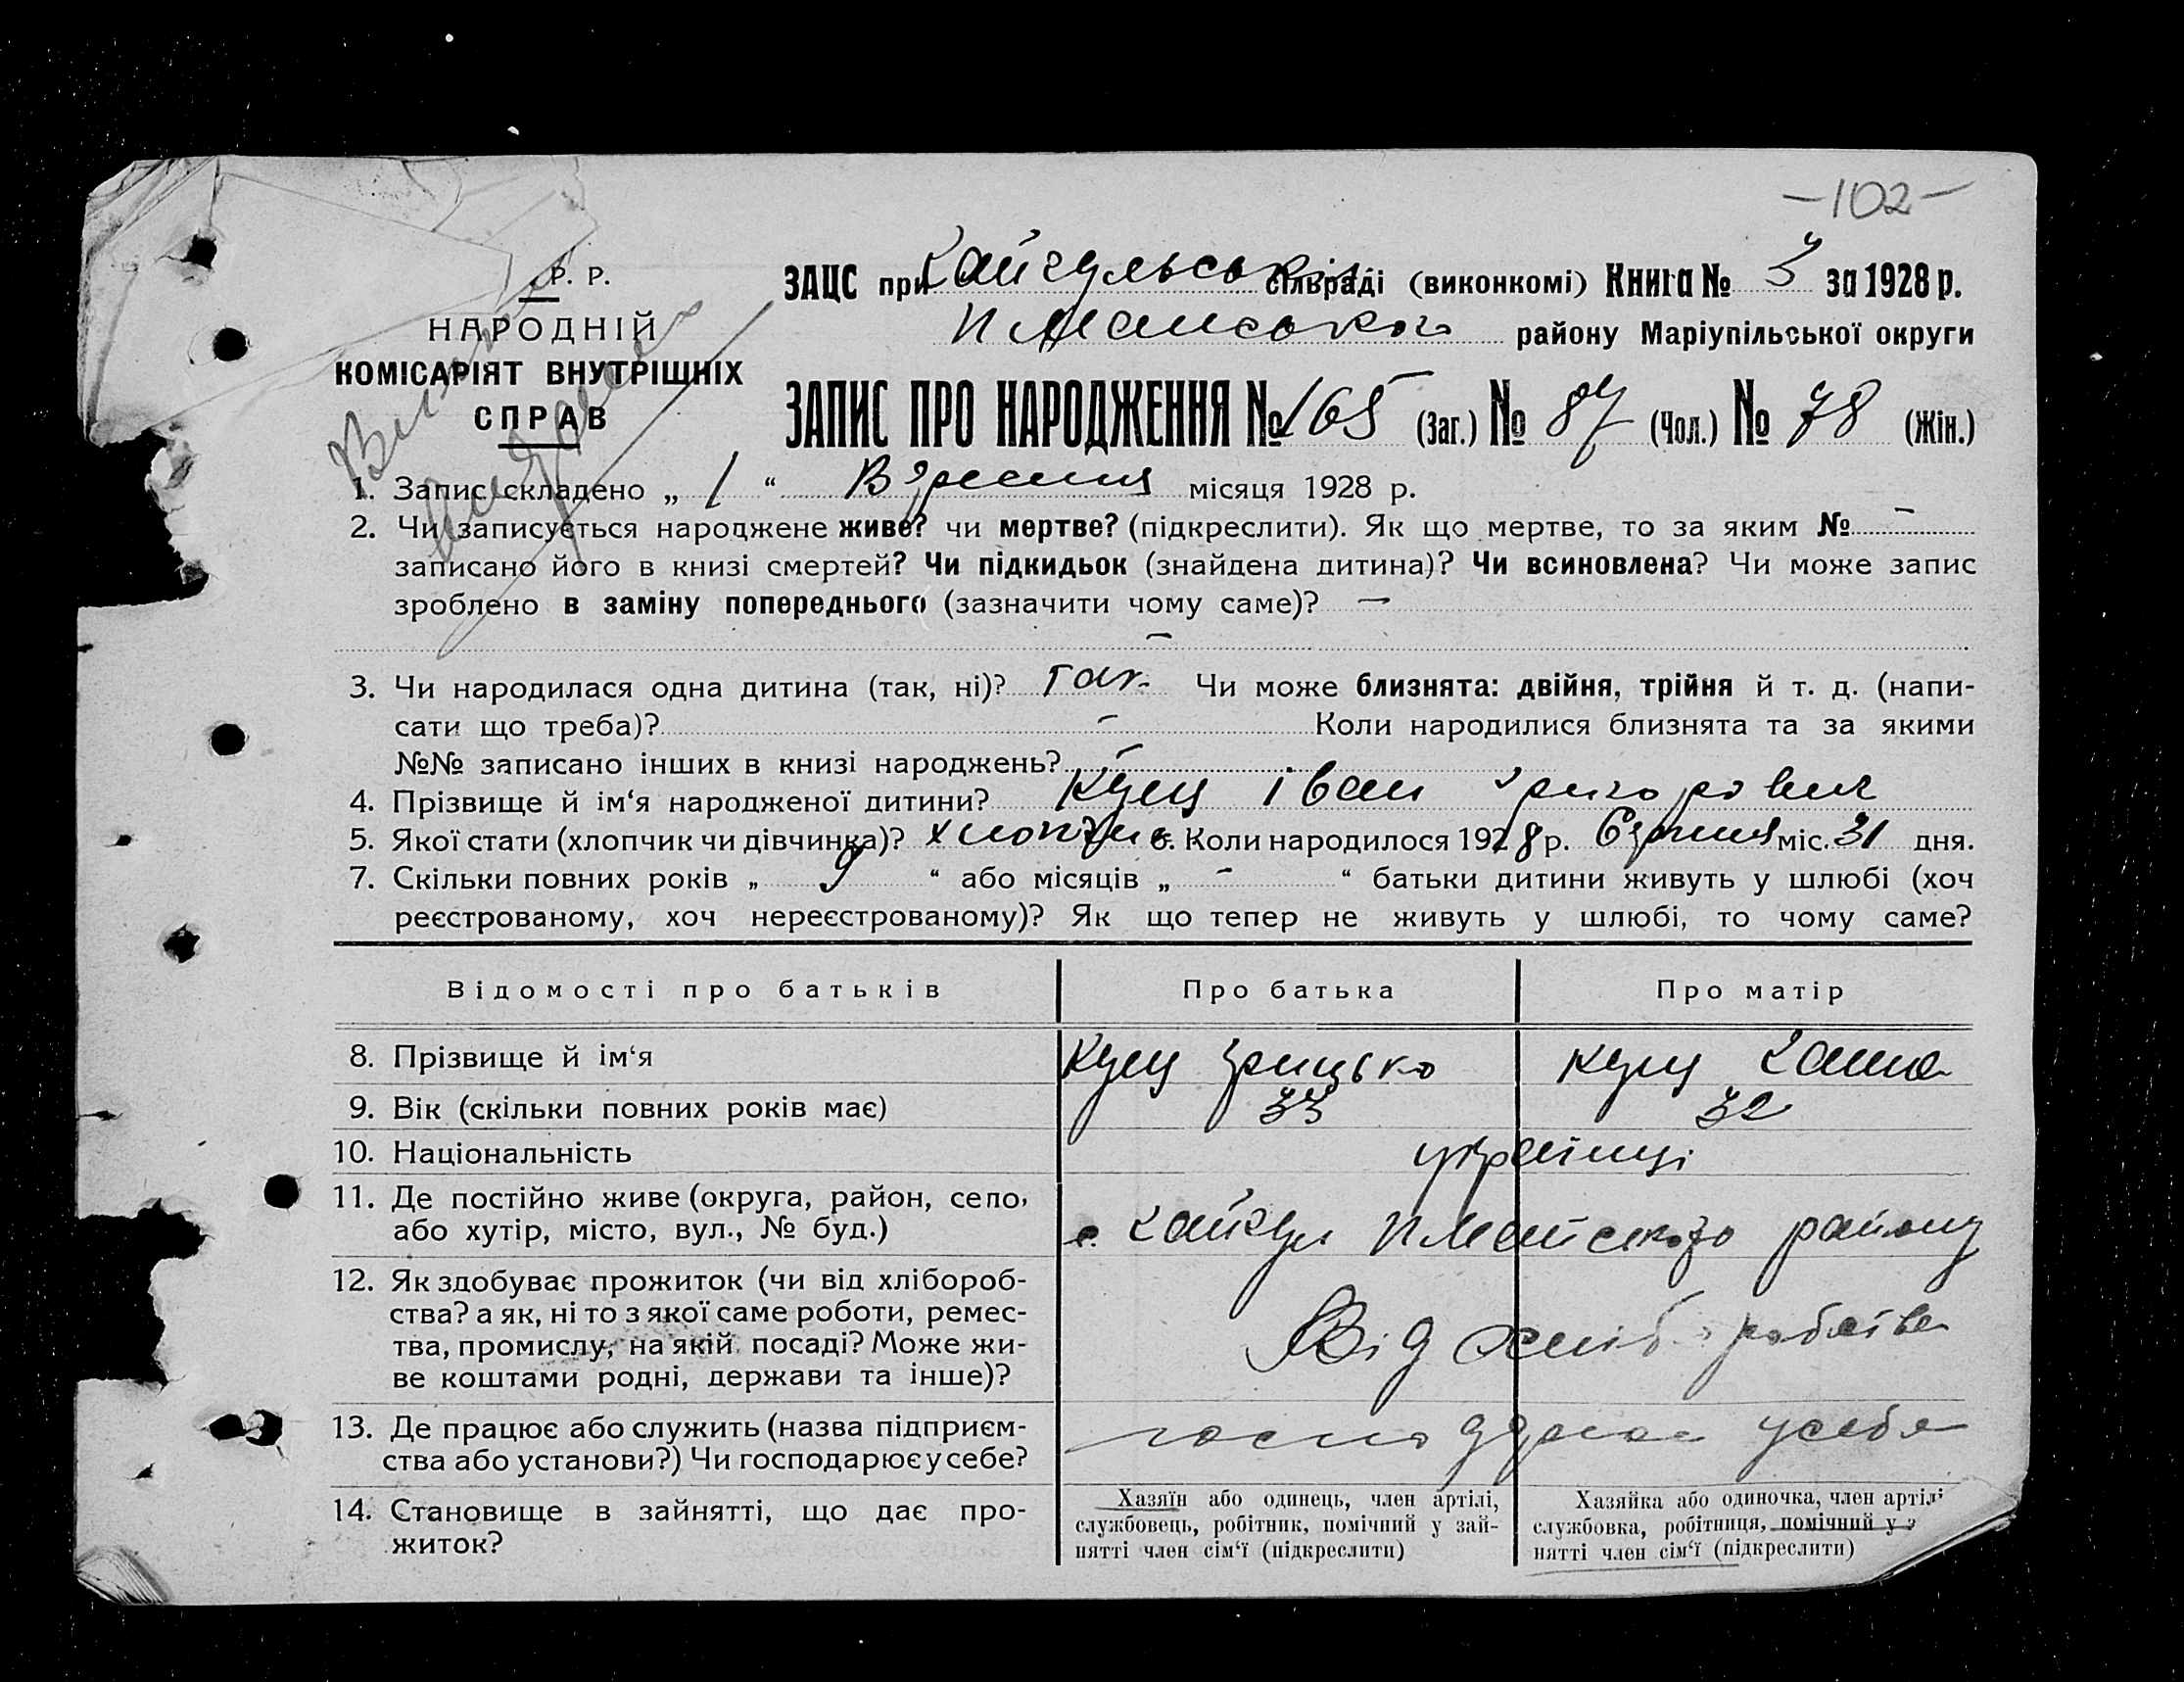 -102-
Р. Р.
НАРОДНІЙ
КОМІСАРІЯТ ВНУТРІШНІХ
СПРАВ
ЗАЦС при сільраді (виконкомі) Книга № 3 за 1928 р.
району Маріупільської округи
ЗАПИС ПРО НАРОДЖЕННЯ № 165 (Заг.) № 87 (Чол.) № 78 (Жін.)
1. Запис складено „ 1 “ Вересня місяця 1928 р.
2. Чи записується народжене живе? чи мертве? (підкреслити). Як що мертве, то за яким № —
записано його в книзі смертей? Чи підкидьок (знайдена дитина)? Чи всиновлена? Чи може запис
зроблено в заміну попереднього (зазначити чому саме)? —
—
3. Чи народилася одна дитина (так, ні)? так. Чи може близнята: двійня, трійня й т. д. (напи-
сати що треба)? — Коли народилися близнята та за якими
№№ записано інших в книзі народжень? —
4. Прізвище й ім‘я народженої дитини? Куц Іван Григорович
5. Якої стати (хлопчик чи дівчинка)? хлопчик 6. Коли народилося 1928 р. Серпня міс. 31 дня.
7. Скільки повних років „ 9 “ або місяців „ - “ батьки дитини живуть у шлюбі (хоч
реєстрованому, хоч нереєстрованому)? Як що тепер не живуть у шлюбі, то чому саме?
Відомості про батьків Про батька Про матір
8. Прізвище й ім‘я Куц Грицько Куц Ганна
9. Вік (скільки повних років має) 33 32
10. Національність українці
11. Де постійно живе (округа, район, село,
або хутір, місто, вул., № буд.) с. району
12. Як здобуває прожиток (чи від хлібороб-
ства? а як, ні то з якої саме роботи, ремес-
тва, промислу, на якій посаді? Може жи-
ве коштами родні, держави та інше)? Від хліборобства
13. Де працює або служить (назва підприєм-
ства або установи?) Чи господарює у себе? усебе
14. Становище в зайнятті, що дає про-
житок?
Хазяїн або одинець, член артілі,
службовець, робітник, помічний у зай-
нятті член сім‘ї (підкреслити)
Хазяйка або одиночка, член артілі
службовка, робітниця, помічний у з
нятті член сім‘ї (підкреслити)